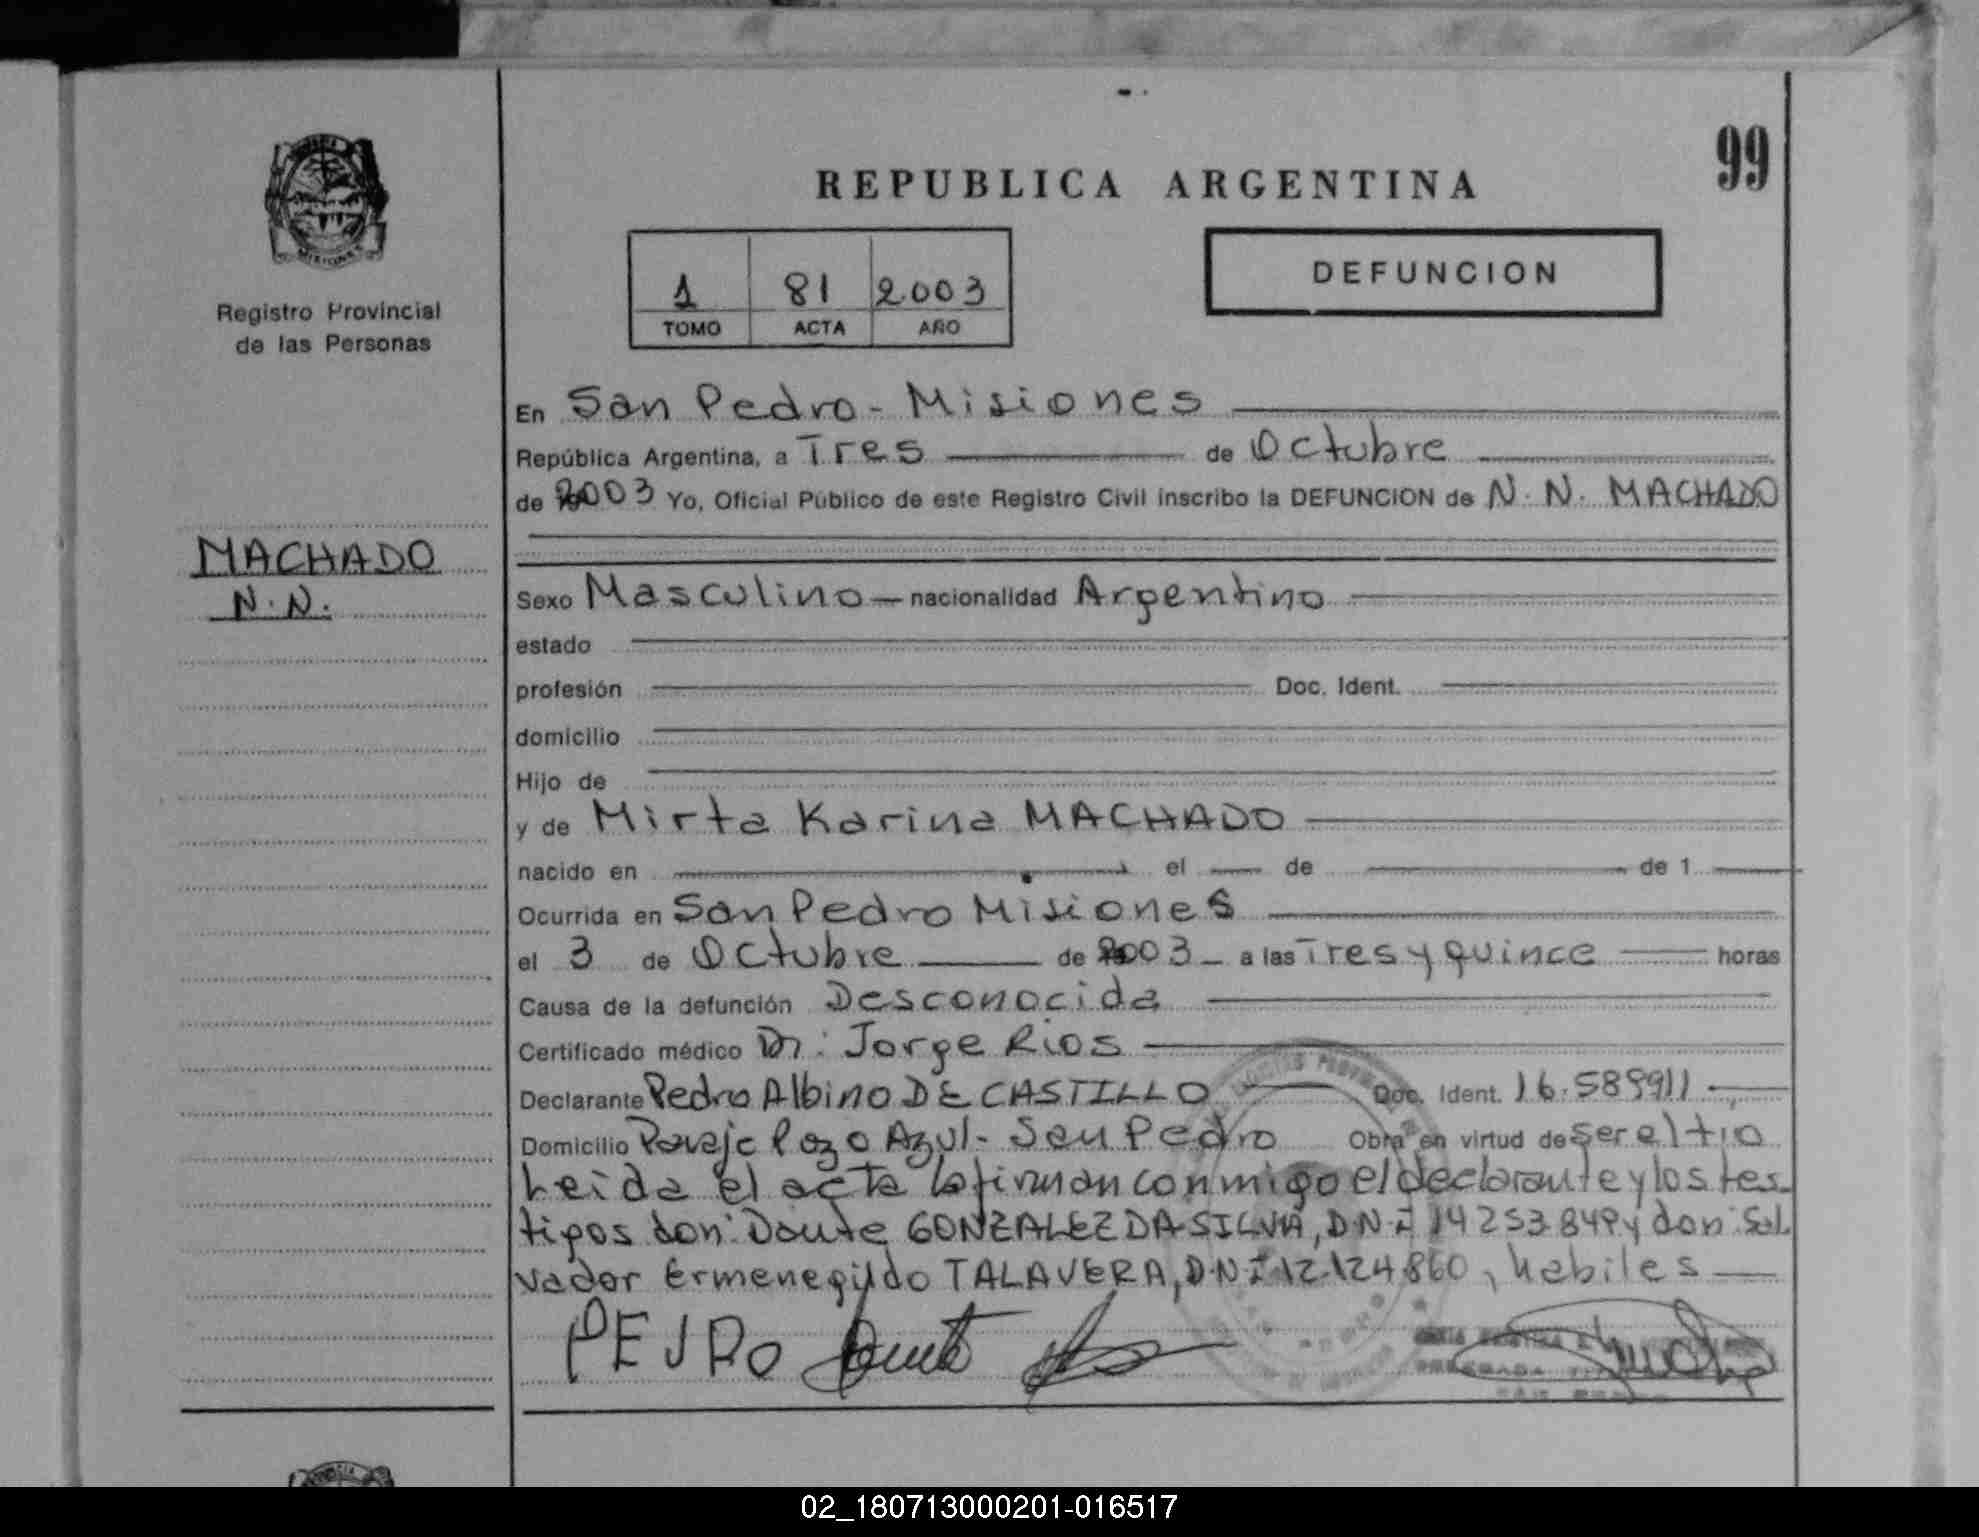 99
REPUBLICA ARGENTINA
MISIONES
Registro Provincial
de las Personas
1 81 2003
TOMO ACTA AÑO
DEFUNCION
MACHADO
N.N.
En San Pedro - Misiones
República Argentina, a Tres de Octubre
de 2003 Yo, Oficial Público de este Registro Civil inscribo la DEFUNCION de N. N. MACHADO
Sexo Masculino nacionalidad Argentino
estado
profesión Doc. Ident.
domicilio
Hijo de
y de Mirta Karina MACHADO
nacido en el de de 1
Ocurrida en San Pedro Misiones
el 3 de Octubre de 2003 a las Tres y quince horas
Causa de la defunción Desconocida
Certificado médico Dr: Jorge Rios
Declarante Pedro Albino DE CASTILLO Doc. Ident. 16.589911
Domicilio Paraje Pozo Azul - San Pedro Obra en virtud de ser el tio
Leida el acta la firman conmigo el declarante y los tes
tigos don: Dante GONZALEZ DA SILVA, D.N.I 14253849 y don: Sal
vador Ermenegildo TALAVERA, D.N.I 12.124.860, habiles
PEDRO
02_180713000201-016517